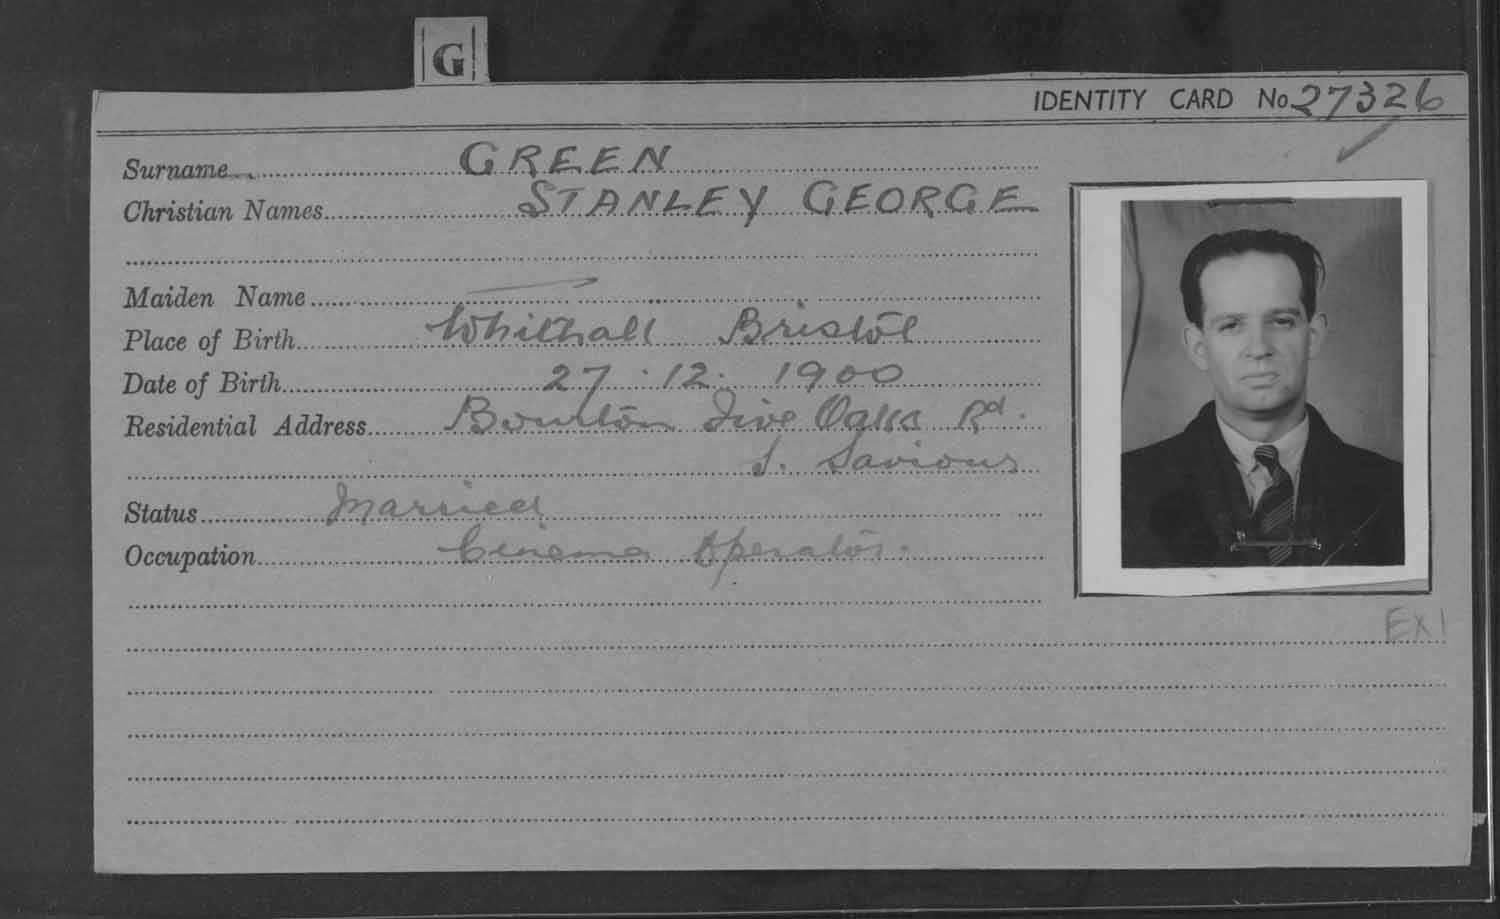 G
IDENTITY CARD No 27326
Surname GREEN
Christian Names STANLEY GEORGE
Maiden Name
Place of Birth Whithall Bristol
Date of Birth 27.12.1900
Residential Address Bourton Five Oaks Rd.
S. Saviour
Status Married
Occupation Cinema Operator.
EX1